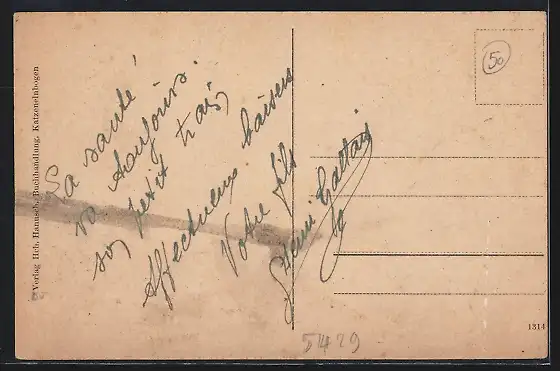 La santé
va toujours
son petit train
Affectueux baisers
Votre fils
Verlag Hch. Hannsch, Buchhandlung, Katzenelnbogen
50
5429
1314